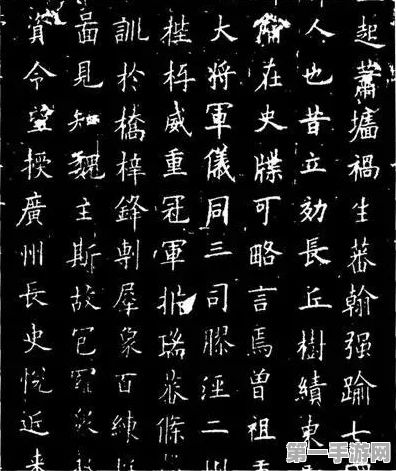 起蕭墻禍生蕃翰强踰七
人也昔立効長丘樹績東
在史牒可略言焉曾祖
大将軍儀同三司膠涇二州
威重冠軍
訓於橋梓鋒剸犀象百練
畐見知魏主斯故苞
資令望授廣州長史悦近来
第一手游网